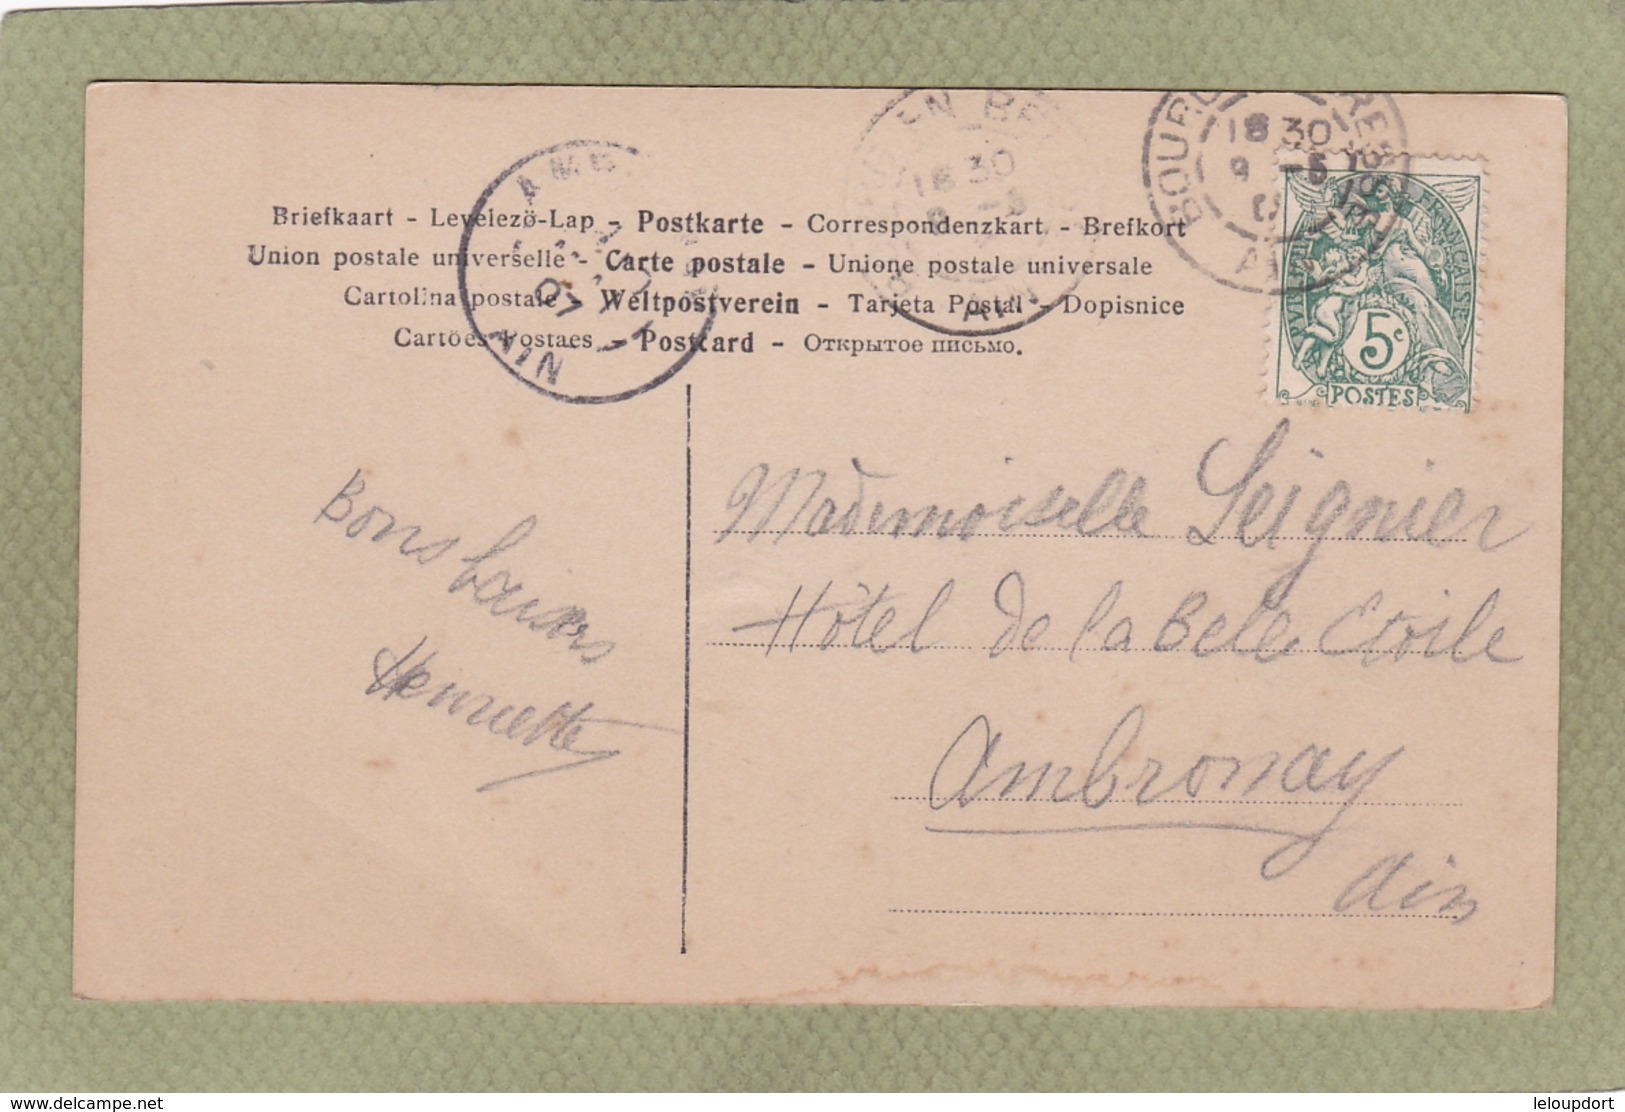 Briefkaart - Levelezö-Lap - Postkarte - Correspondenzkart - Brefkort
Union postale universelle - Carte postale - Unione postale universale
Cartolina postale - Weltpostverein - Tarjeta Postal - Dopisnice
Cartões Postaes - Postcard - Открытое письмо.
18 30
AIN
07
18 30
9 -5
FRANÇAISE
5c
POSTES
Bons baisers
Henriette
Mademoiselle Seignier
Hôtel de la Bele Etoile
Ambronay
Ain
www.delcampe.net
leloupdort